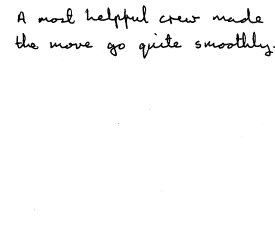 A most helpful crew made
the move go quite smoothly.